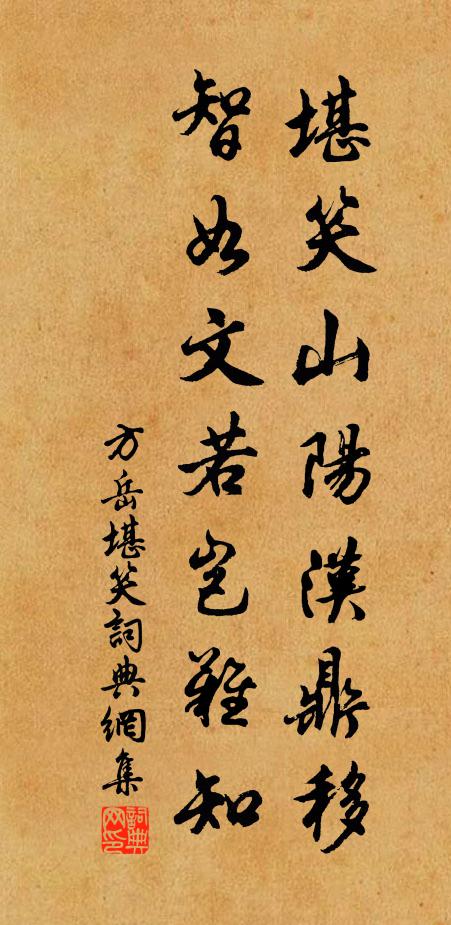 堪笑山陽漢鼎移
智如文若豈難知
方岳堪笑詞典網集
詞典网印